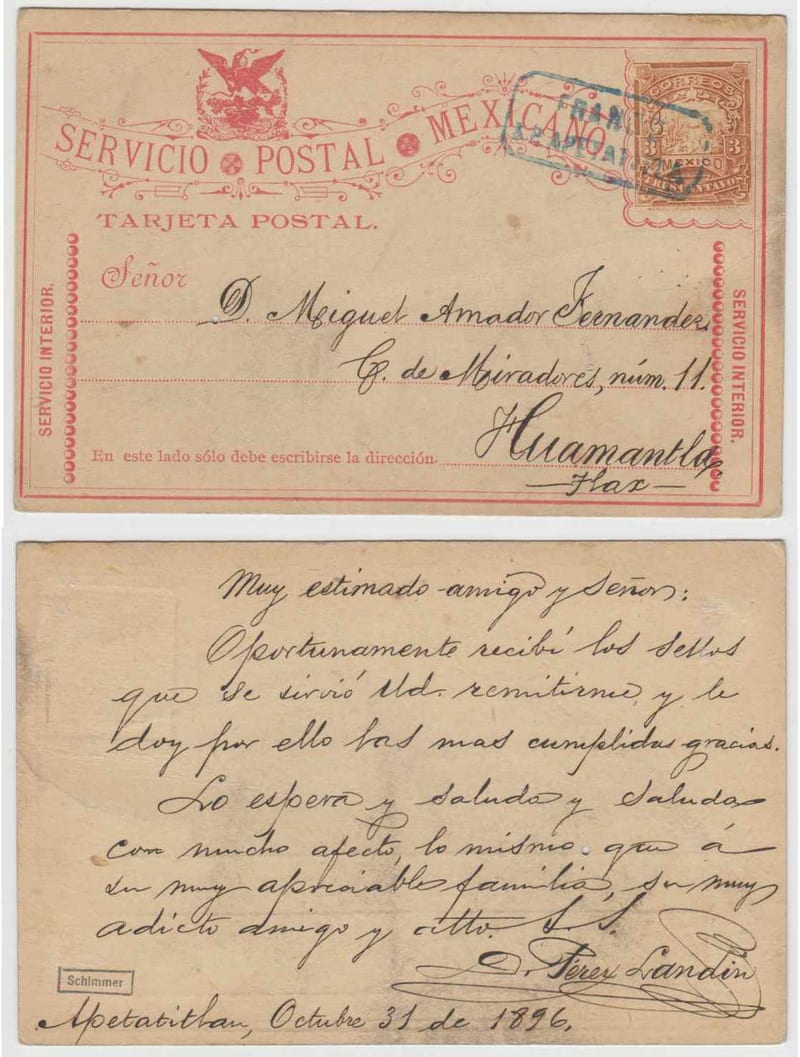 SERVICIO POSTAL MEXICANO
TARJETA POSTAL.
FRANCO
APETATITLAN
CORREOS
3 3
MEXICO
TRES CENTAVOS
SERVICIO INTERIOR.
Señor
D. Miguel Amador Fernandez
C. de Miradores, núm. 11.
En este lado sólo debe escribirse la dirección. Huamantla
—Tlax—
SERVICIO INTERIOR.
Muy estimado amigo y Señor:
Oportunamente recibí los sellos
que se sirvió Ud. remitirme, y le
doy por ello las mas cumplidas gracias.
Lo espera y saluda y saluda
con mucho afecto, lo mismo que á
su muy apreciable familia, su muy
adicto amigo y atto. S. S.
D. Pérez Landin
Schimmer
Apetatitlan, Octubre 31 de 1896.